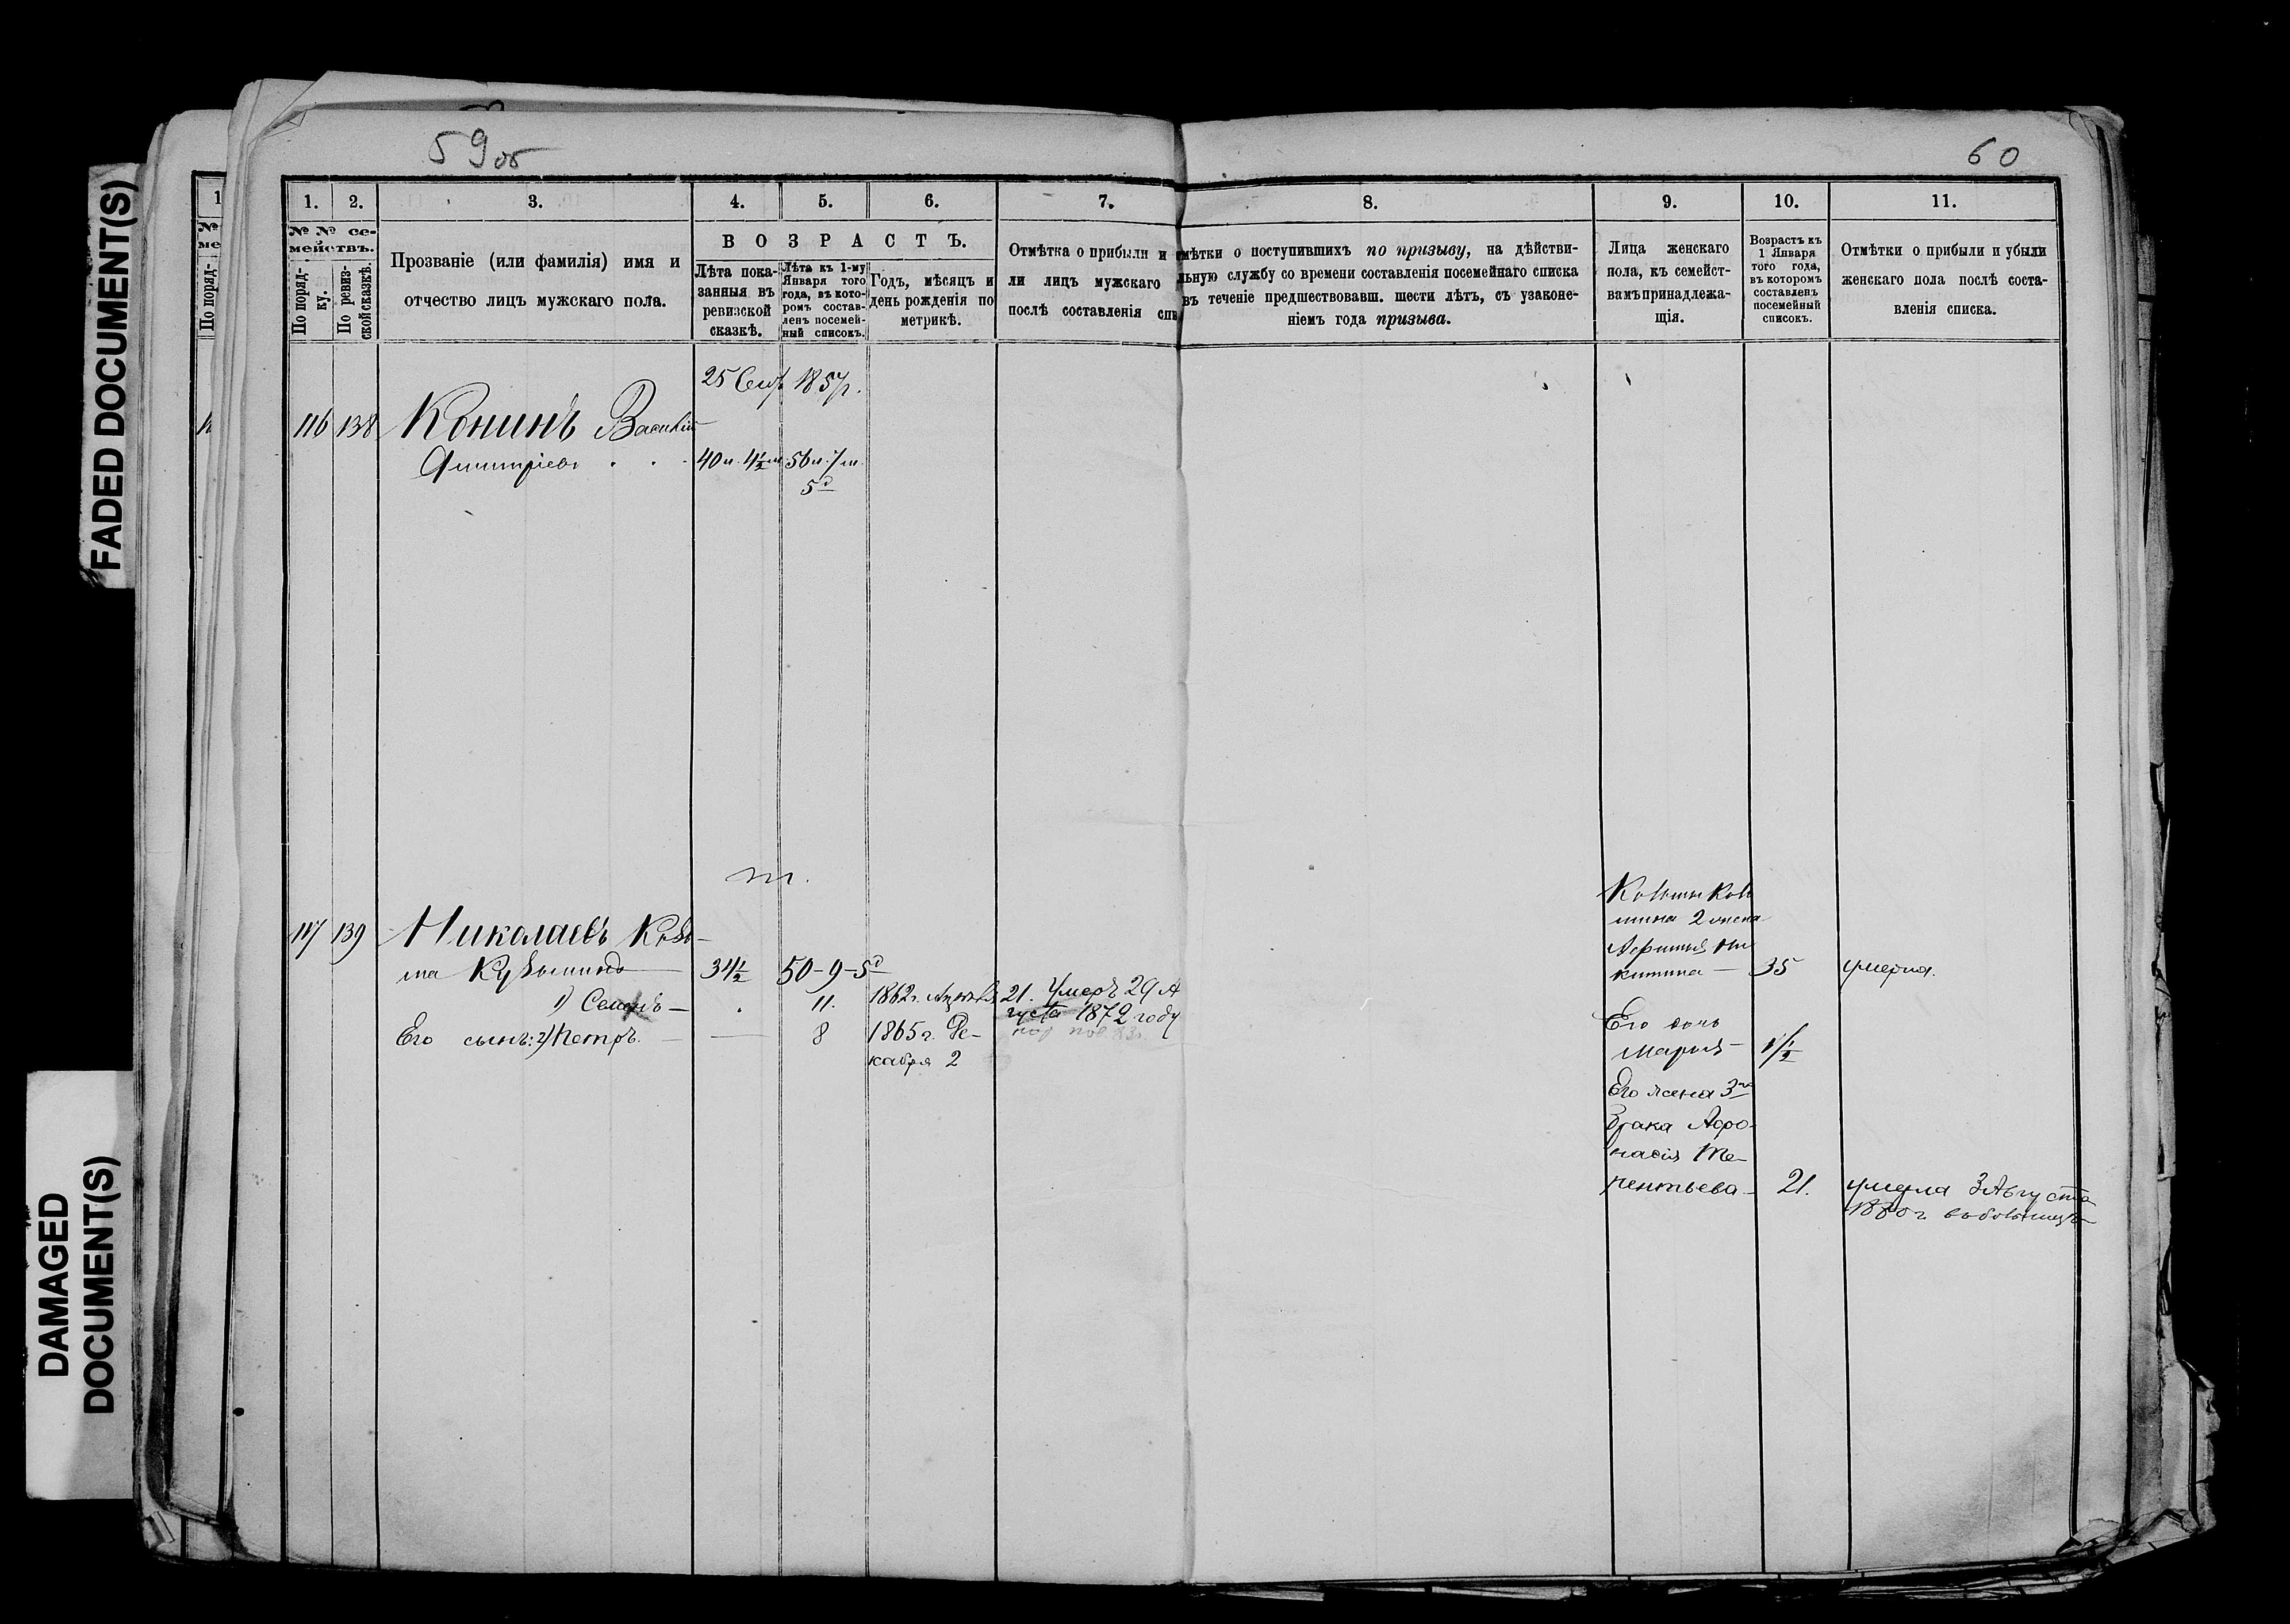 FADED DOCUMENT(S)
DAMAGED
DOCUMENT(S)
59об
60
1.
2.
3.
4.
5.
6.
7.
8.
9.
10.
11.
№ № се-
мействъ.
По поряд-
ку.
По ревиз-
ской сказкѣ.
Прозваніе (или фамилія) имя и
отчество лицъ мужскаго пола.
В О З Р А С Т Ъ.
Лѣта пока-
занныя въ
ревизской
сказкѣ.
Лѣта къ 1-му
Января того
года, въ кото-
ромъ состав-
ленъ посемей-
ный списокъ.
Годъ, мѣсяцъ и
день рожденія по
метрикѣ.
Отмѣтка о прибыли и
ли лицъ мужскаго
послѣ составленія спи
мѣтки о поступившихъ по призыву, на дѣйстви-
льную службу со времени составленія посемейнаго списка
въ теченіе предшествовавш. шести лѣтъ, съ узаконе-
ніемъ года призыва.
Лица женскаго
пола, къ семейст-
вамъ принадлежа-
щія.
Возрастъ къ
1 Января
того года,
въ которомъ
составленъ
посемейный
списокъ.
Отмѣтки о прибыли и убыли
женскаго пола послѣ соста-
вленія списка.
25 Сент. 1857г.
116 138 Конинъ Василій
Дмитріевъ 40л. 4½м. 56л. 7м.
5д
117 139 Николаевъ Козь-
ма Кузьминъ 34½ 50-9-5д
1) Семенъ 11. 1862г. 21. Умеръ 29 А
густа 1872 году
Его сынъ: 2) Петръ. 8 1865г. Де-
кабря 2
Козьмы Козь
мина 2 жена
Ни
китина 35 умерла.
Его дочь
Марья 1½
Его жена 3го
брака Афо-
насія Те-
рентьева 21. умерла 3 Августа
1880г.